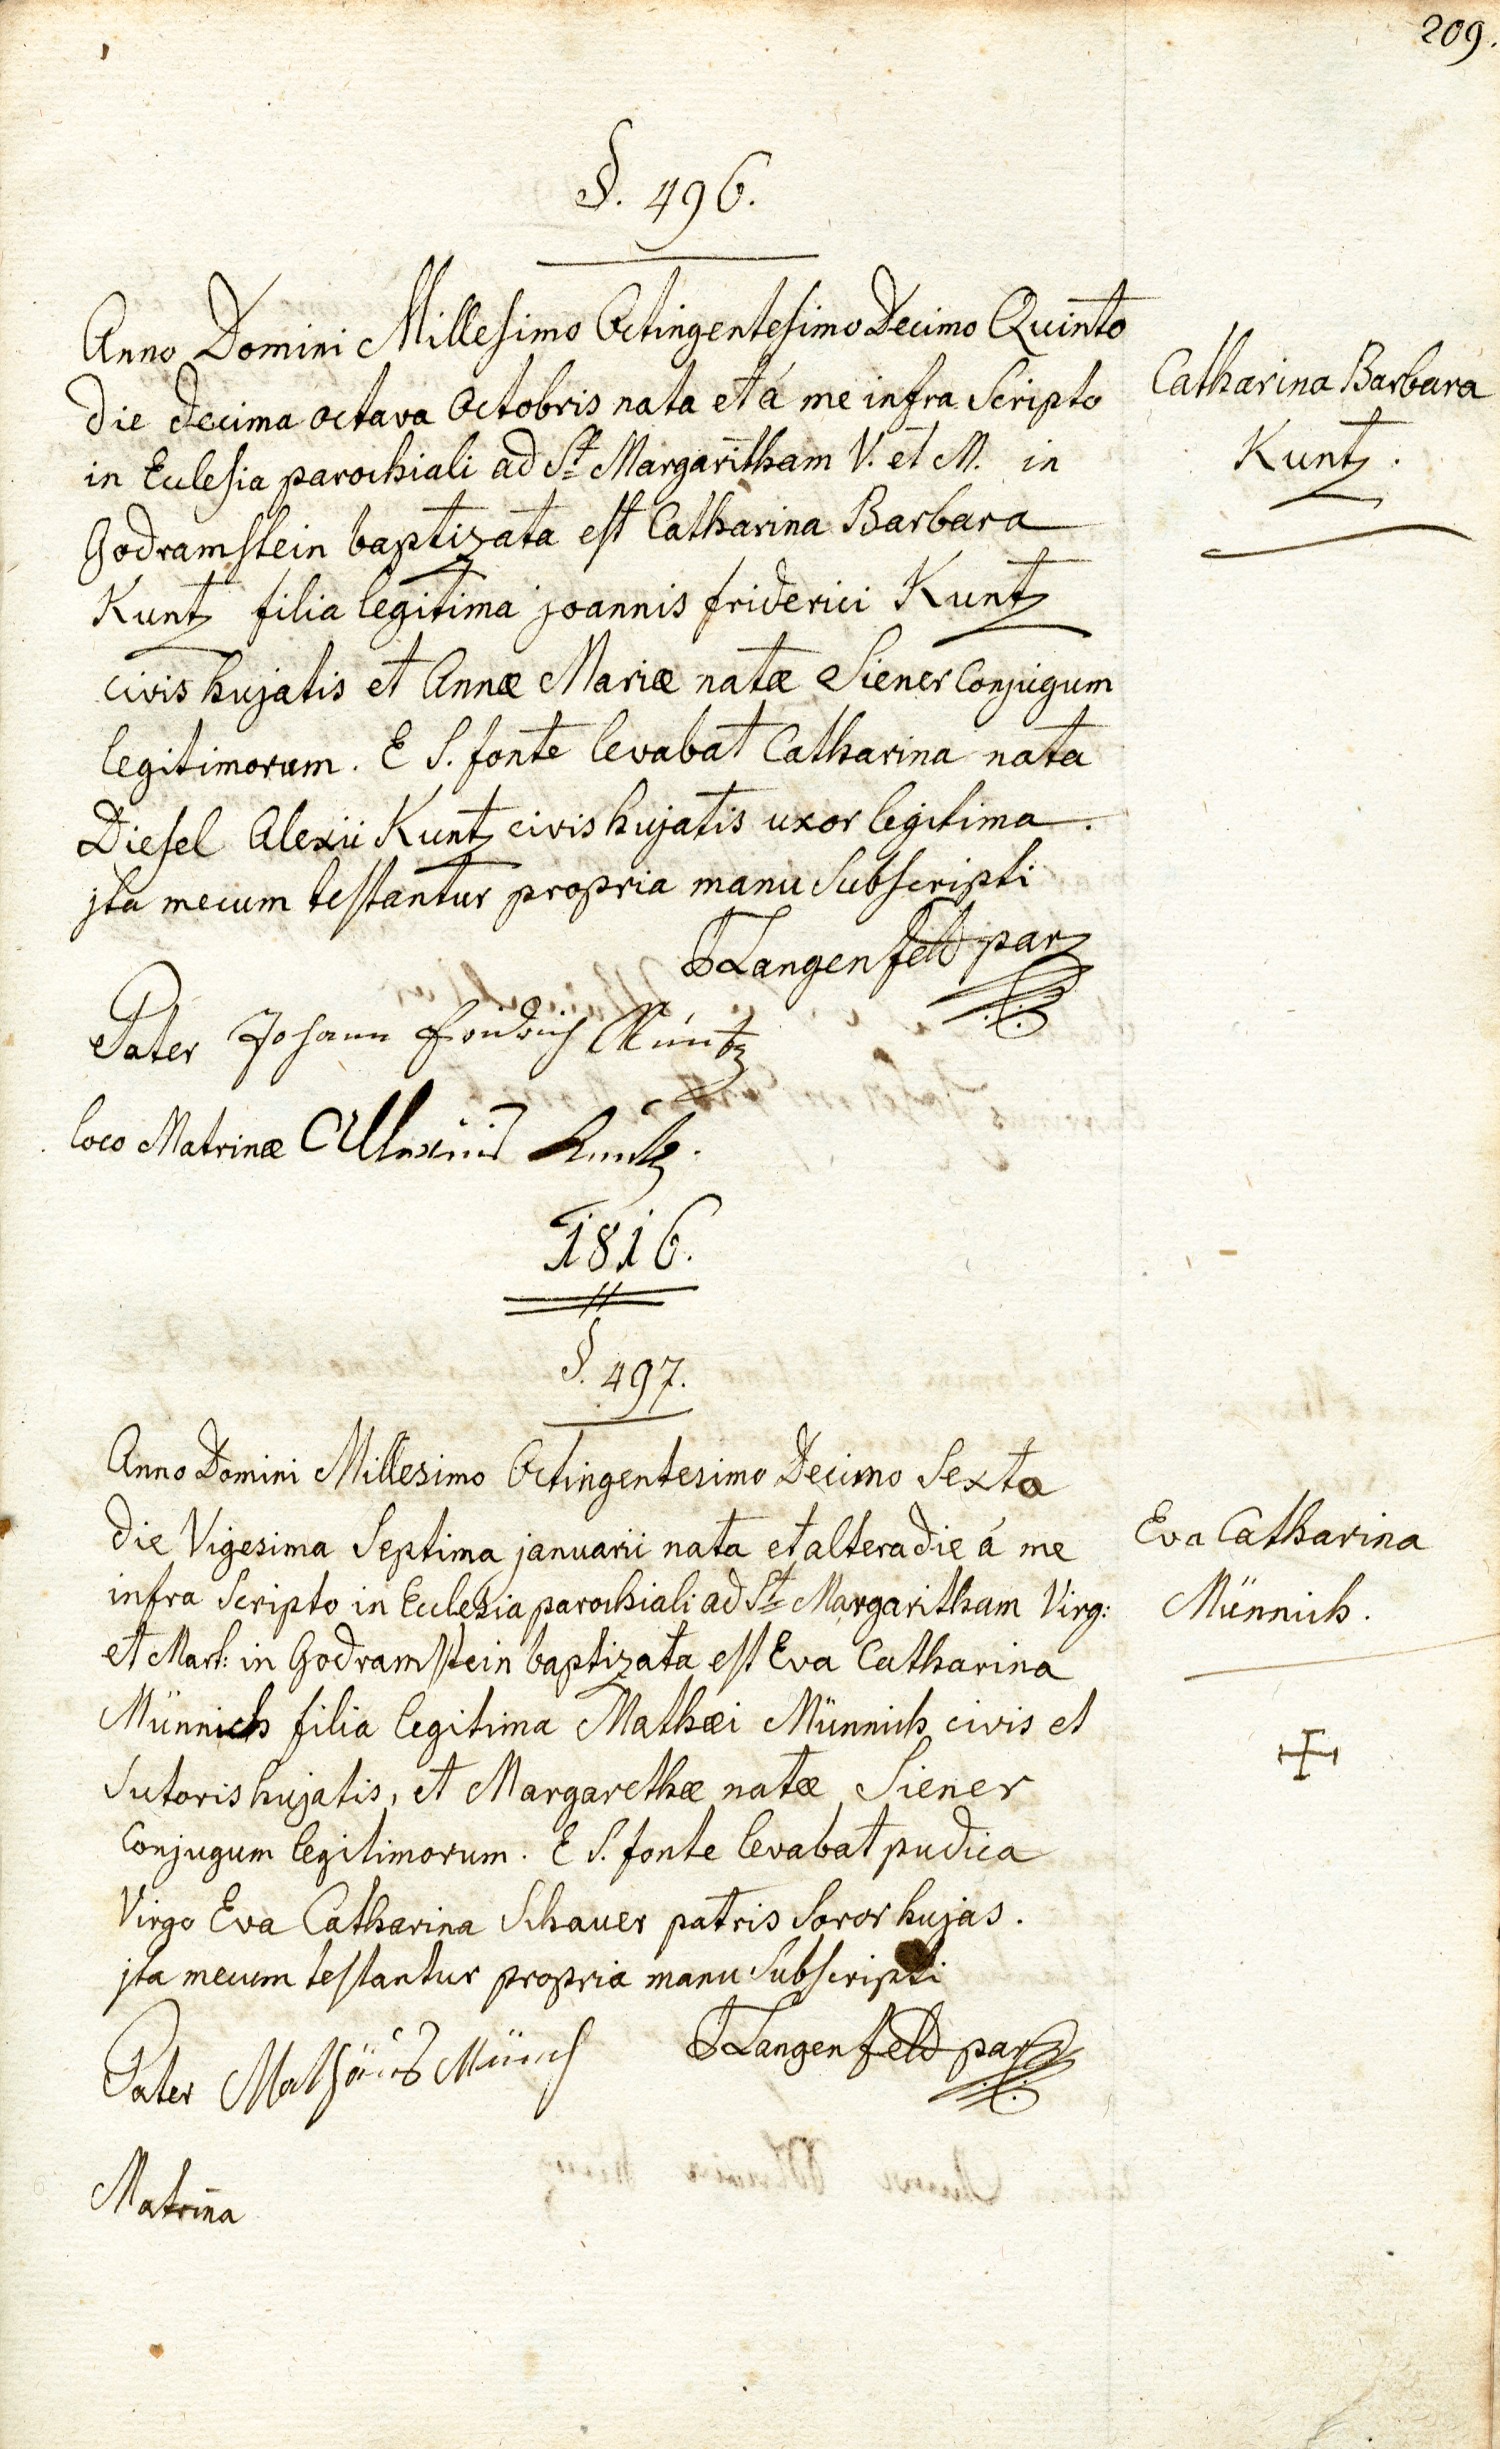 209.
§. 496.
Anno Domini Millesimo Octingentesimo Decimo Quinto
die decima octava Octobris nata et á me infra Scripto
in Eclesia parochiali ad St. Margaritham V. et M. in
Godramstein baptizata est Catharina Barbara
Kuntz filia legitima joannis friderici Kuntz
civis hujatis et Annæ Mariæ natæ Siener Conjugum
legitimorum. E S. fonte levabat Catharina nata
Diesel Alexii Kuntz civis hujatis uxor legitima.
jta mecum testantur propria manu Subscripti
Catharina Barbara
Kuntz.
TLangenfeld par
Pater Johann Fridrich Kuntz
loco Matrinæ Allexius Kuntz.
1816.
§. 497.
Anno Domini Millesimo Octingentesimo Decimo Sexto
die Vigesima Septima januarii nata et altera die á me
infra Scripto in Ecclesia parochiali ad St. Margaritham Virg:
et Mart: in Godramstein baptizata est Eva Catharina
Münnich filia legitima Mathæi Münnich civis et
Sutoris hujatis, et Margarethæ natæ Siener
Conjugum legitimorum. E S. fonte levabat pudica
Virgo Eva Catharina Schauer patris Soror hujas.
jta mecum testantur propria manu Subscripti
Eva Catharina
Münnich.
TLangenfeld par
Pater Mathäus Münch
Matrina